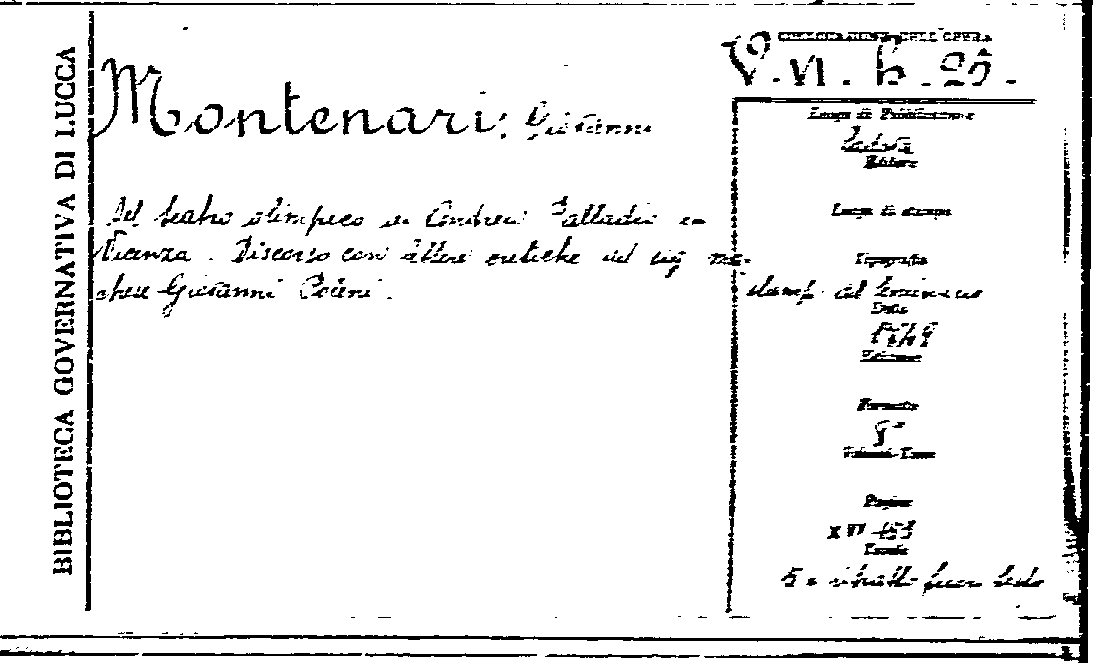 BIBLIOTECA GOVERNATIVA DI LUCCA
COLLOCAZIONE DELL'OPERA
V. VI. b. 25.
Montenari, Giovanni
Del teatro olimpico di Andrea Palladio in
Vicenza. Discorso con lettere critiche del sig. mar-
chese Giovanni Poleni.
Luogo di Pubblicazione
Padova
Editore
Luogo di stampa
Tipografia
stamp. del Seminario
Data
1749
Edizione
Formato
8°
Volumi-Tomi
Pagine
XVI-153
Tavole
5 e ritratto fuori testo